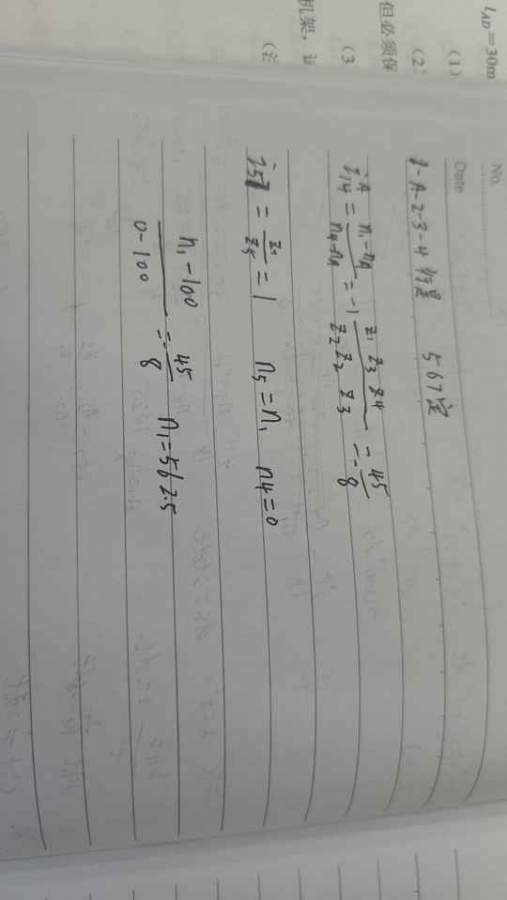 l_AD=30m
(1)
(2)
但必须保
(3
机架,
No.
Date
1-A-2-3-4 行星 567定
i₁₄ᴬ = (n₁-n_A)/(n₄-n_A) = -1 (z₁ z₃ z₄)/(z₂ z₂ z₃) = -45/8
i₅₇ = z₇/z₅ = 1 n₅=n₁ n₄=0
(n₁-100)/(0-100) = -45/8 n₁=562.5